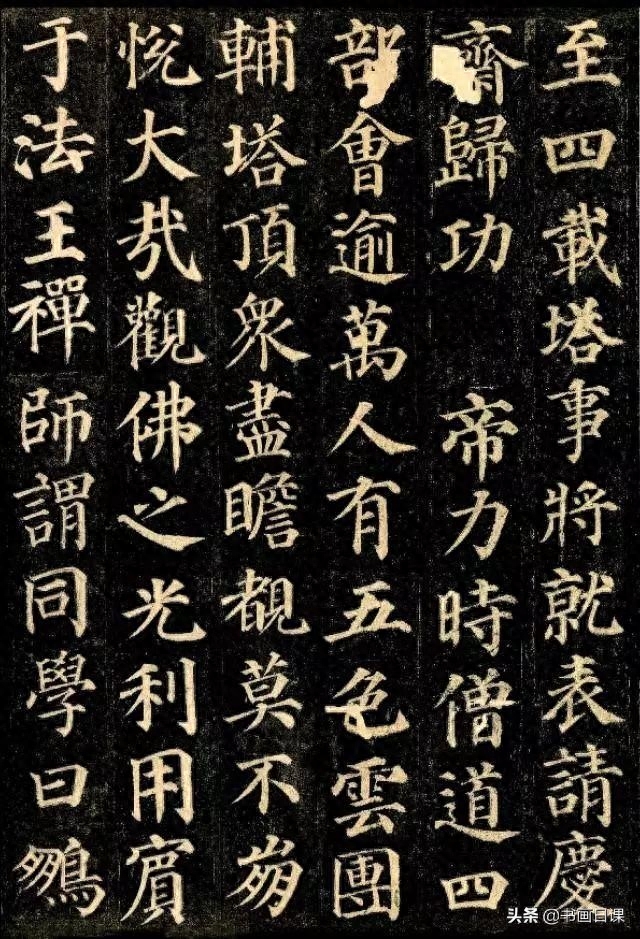 至四載塔事將就表請慶
齋歸功 帝力時僧道四
部會逾萬人有五色雲團
輔塔頂眾盡瞻覩莫不崩
悅大哉觀佛之光利用賓
于法王禪師謂同學曰鵬
头条 @书画日课